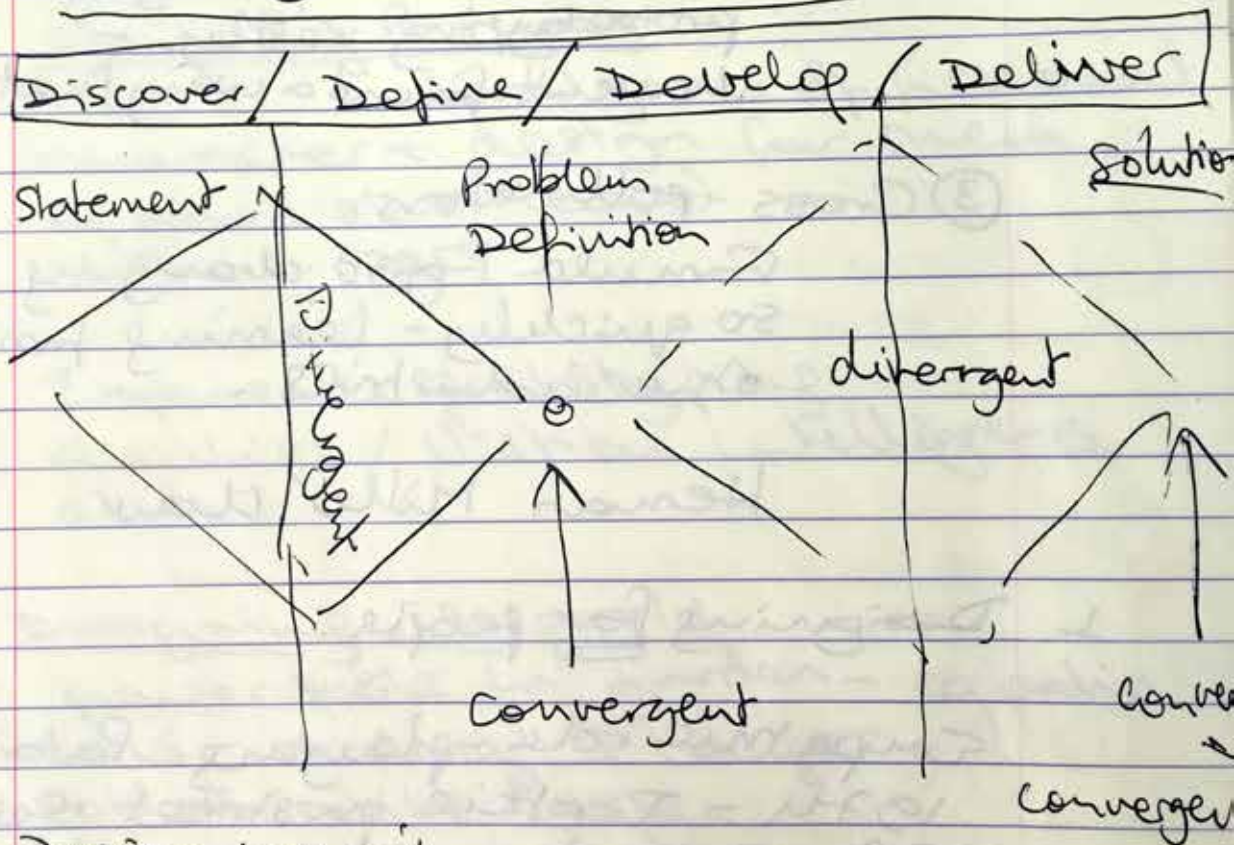 Discover / Define / Develop / Deliver
Statement
Problem
Definition
Solution
Divergent
diverrgent
Convergent
Conve
Converge